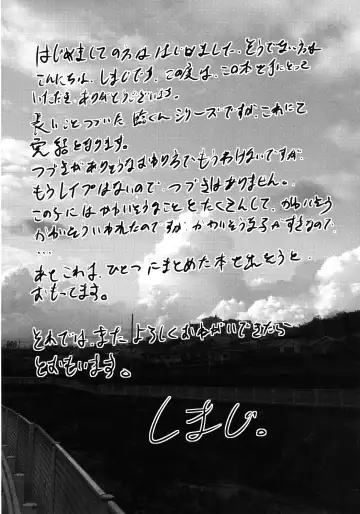 はじめましての方ははじめまして、そうでない方は
こんにちは、しまじです。この度は、この本を手にとって
いただき、ありがとうございます。
長いことつづいた臨くんシリーズですが、これにて
完結となります。
つづきがありそうなおわり方でもうしわけないですが
もうレイプはないので、つづきはありません。
この子にはかわいそうなことをたくさんして、かわいそう
かわいそういわれたのですが、かわいそうな子がすきなので、
…
あとこれは、ひとつにまとめた本を出そうと
おもってます。
それでは、またよろしくおねがいできたら
とおもいます。
しまじ。